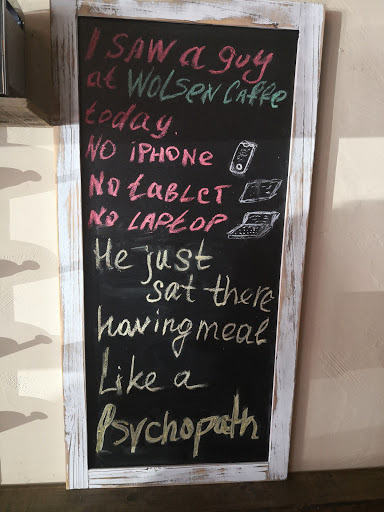 I SAW a guy
at WOLSEN CAFFE
today.
NO iPHONE
NO tABLET
NO LAPtOP
He just
sat there
having meal
Like a
Psychopath